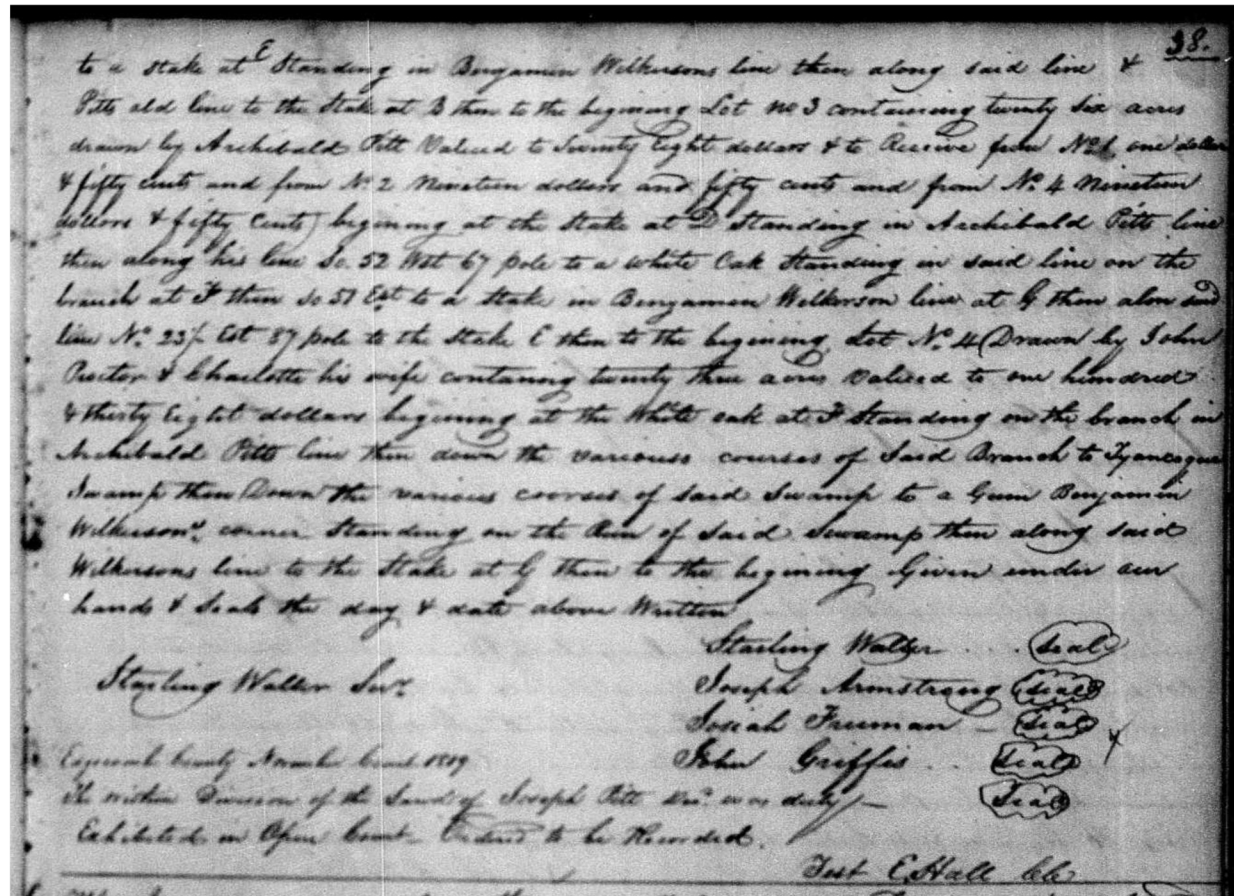 38.
to a stake at E Standing in Benjamen Wilkersons line then along said line &
Pitts old line to the Stake at B then to the begining Lot No 3 containing twenty six acres
drawn by Archibald Pitt Valued to Seventy Eight dollars & to Receive from No 1 one dollar
& fifty cents and from No 2 Nineteen dollars and fifty cents and from No. 4 Nineteen
dollars & fifty Cents) begining at the Stake at D Standing in Archibald Pitts line
then along his line So. 52 Wst 67 pole to a white Oak Standing in said line on the
branch at F then So 51 Est to a stake in Benjamen Wilkerson line at G then alon said
line No. 23 Est 87 pole to the Stake E then to the begining Lot No. 4 (Drawn by John
Proctor & Charlotte his wife containing twenty three acres valued to one hundred
& thirty Eight dollars begining at the White oak at F Standing on the branch in
Archibald Pitts line then down the variouss courses of Said Branch to
Swamp then Down the various courses of said Swamp to a Gum Benjamin
Wilkersons corner Standing on the Run of Said Swamp then along said
Wilkersons line to the Stake at G then to the begining Given under our
hands & Seals the day & date above Written
Starling Waller . . . Seal
Starling Waller Survr
Joseph Armstrong Seal
Josiah Freeman - Seal
John Griffis . . Seal
Edgecomb County November Court 1819
The within Division of the Land of Joseph Pitt Decd. was duly Seal
Exhibited in Open Court Ordered to be Recorded.
Test E. Hall Clk